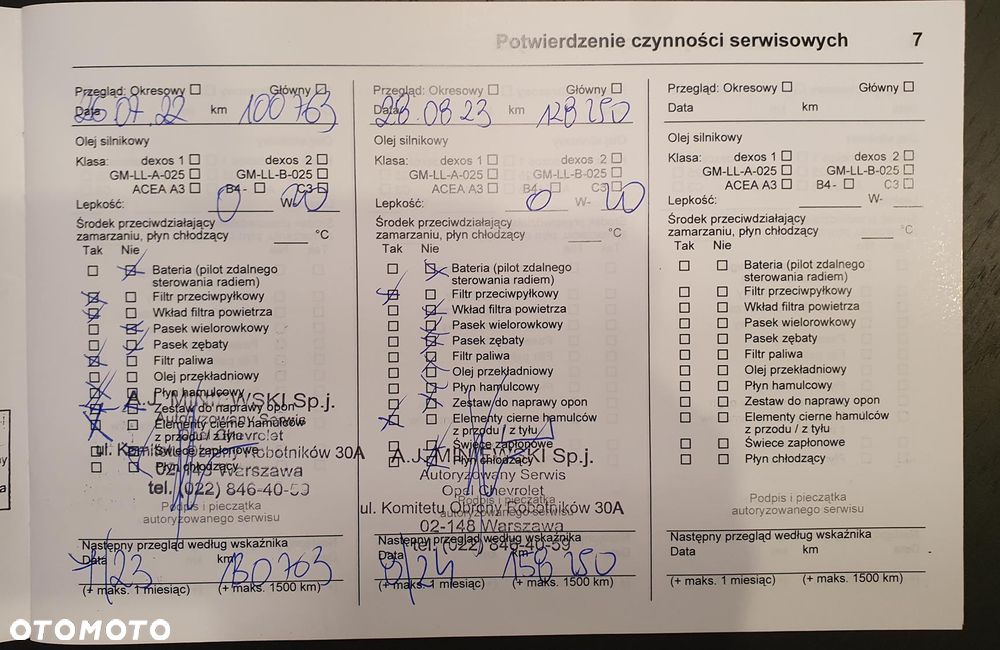 Potwierdzenie czynności serwisowych 7
Przegląd: Okresowy ☐ Główny ☐
Data 26.07.22 km 100763
Olej silnikowy
Klasa: dexos 1 ☐ dexos 2 ☐
GM-LL-A-025 ☐ GM-LL-B-025 ☐
ACEA A3 ☐ B4 - ☐ C3 ☐
Lepkość: 0 W- 20
Środek przeciwdziałający
zamarzaniu, płyn chłodzący ____ °C
Tak Nie
Bateria (pilot zdalnego
sterowania radiem)
Filtr przeciwpyłkowy
Wkład filtra powietrza
Pasek wielorowkowy
Pasek zębaty
Filtr paliwa
Olej przekładniowy
Płyn hamulcowy
A.J. MINIEWSKI Sp.j.
Zestaw do naprawy opon
Autoryzowany Serwis
Elementy cierne hamulców
z przodu / z tyłu
Opel Chevrolet
Świece zapłonowe
ul. Komitetu Obrony Robotników 30A
Płyn chłodzący
02-148 Warszawa
tel. (022) 846-40-59
Podpis i pieczątka
autoryzowanego serwisu
Następny przegląd według wskaźnika
Data 7/23 km 130763
(+ maks. 1 miesiąc) (+ maks. 1500 km)
Przegląd: Okresowy ☐ Główny ☐
Data 28.08.23 km 128250
Olej silnikowy
Klasa: dexos 1 ☐ dexos 2 ☐
GM-LL-A-025 ☐ GM-LL-B-025 ☐
ACEA A3 ☐ B4- ☐ C3 ☐
Lepkość: 0 W- 20
Środek przeciwdziałający
zamarzaniu, płyn chłodzący ____ °C
Tak Nie
Bateria (pilot zdalnego
sterowania radiem)
Filtr przeciwpyłkowy
Wkład filtra powietrza
Pasek wielorowkowy
Pasek zębaty
Filtr paliwa
Olej przekładniowy
Płyn hamulcowy
Zestaw do naprawy opon
Elementy cierne hamulców
z przodu / z tyłu
Świece zapłonowe
A.J. MINIEWSKI Sp.j.
Płyn chłodzący
Autoryzowany Serwis
Opel Chevrolet
Podpis i pieczątka
ul. Komitetu Obrony Robotników 30A
autoryzowanego serwisu
02-148 Warszawa
Następny przegląd według wskaźnika
tel. (022) 846-40-59
Data 8/24 km 158250
(+ maks. 1 miesiąc) (+ maks. 1500 km)
Przegląd: Okresowy ☐ Główny ☐
Data km
Olej silnikowy
Klasa: dexos 1 ☐ dexos 2 ☐
GM-LL-A-025 ☐ GM-LL-B-025 ☐
ACEA A3 ☐ B4 - ☐ C3 ☐
Lepkość: ____ W- ____
Środek przeciwdziałający
zamarzaniu, płyn chłodzący ____ °C
Tak Nie
Bateria (pilot zdalnego
sterowania radiem)
Filtr przeciwpyłkowy
Wkład filtra powietrza
Pasek wielorowkowy
Pasek zębaty
Filtr paliwa
Olej przekładniowy
Płyn hamulcowy
Zestaw do naprawy opon
Elementy cierne hamulców
z przodu / z tyłu
Świece zapłonowe
Płyn chłodzący
Podpis i pieczątka
autoryzowanego serwisu
Następny przegląd według wskaźnika
Data km
(+ maks. 1 miesiąc) (+ maks. 1500 km)
OTOMOTO